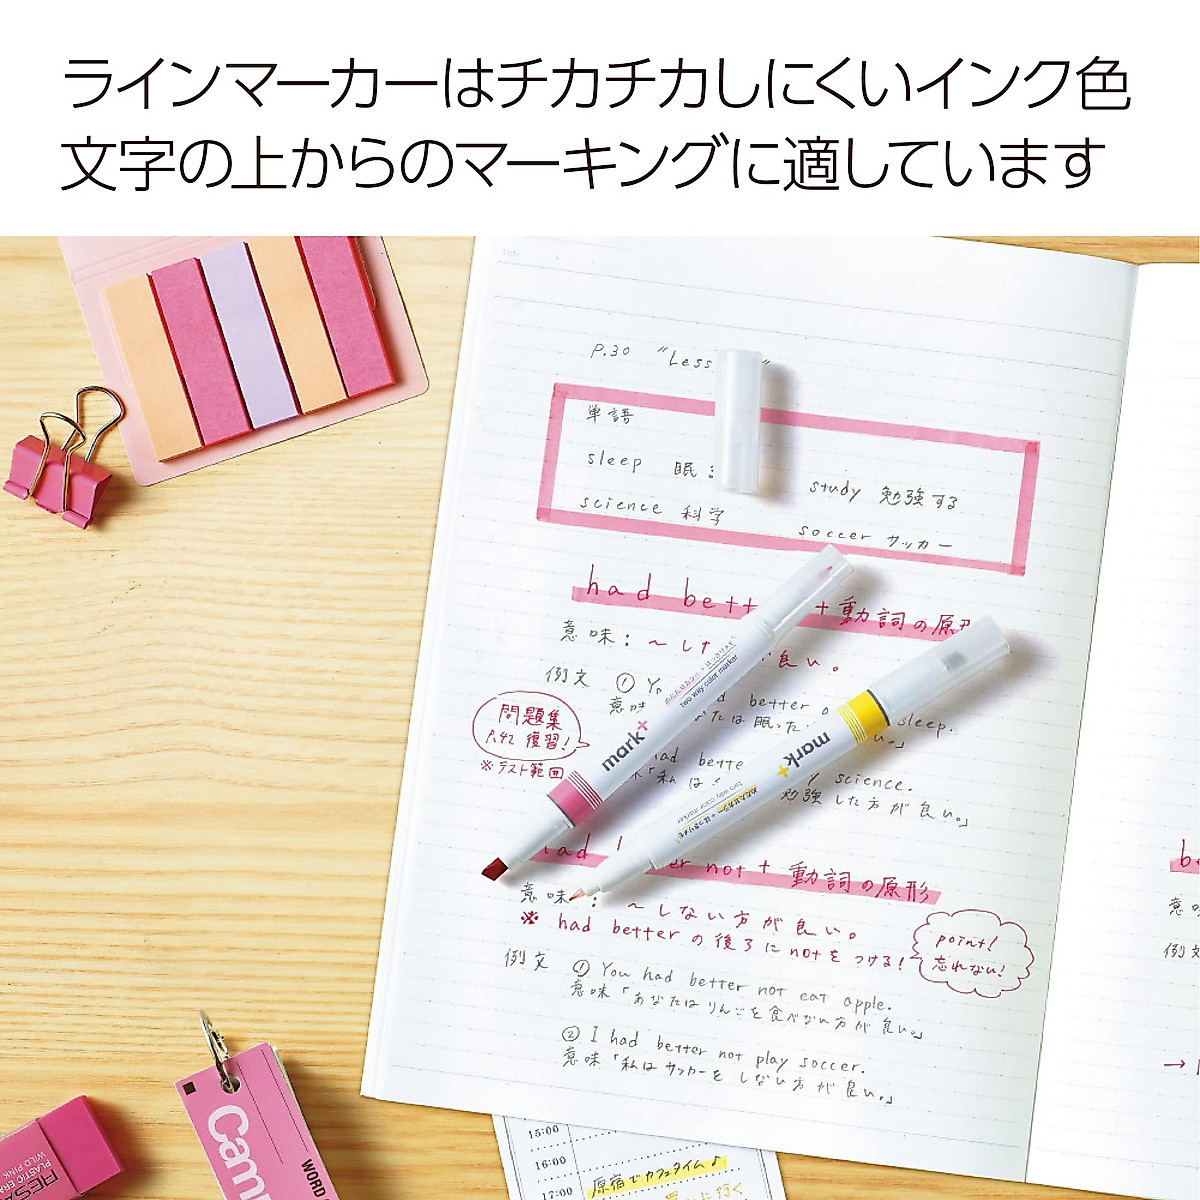 ラインマーカーはチカチカしにくいインク色
文字の上からのマーキングに適しています
Date
P.30 "Less "
単語
sleep 眠る
study 勉強する
science 科学
soccer サッカー
had bett +動詞の原形
意味：〜し 良い。
例文 ① Yo had better sleep.
意味 たは眠った い。」
問題集
P.42 復習!
※テスト範囲
had bette science.
「私は 勉強した方が良い。」
mark+
two way color marker
mark+
two way color marker
had better not + 動詞の原形
意味：〜しない方が良い。
※ had betterの後ろにnotをつける!
point!
忘れない!
例文 ① You had better not eat apple.
意味「あなたはりんごを食べない方が良い。」
② I had better not play soccer.
意味「私はサッカーをしない方が良い。」
15:00
16:00
原宿でカフェタイム♪
17:00
に行く
Cam
WORD
PLASTIC ERASER
WILD PINK
意
例文